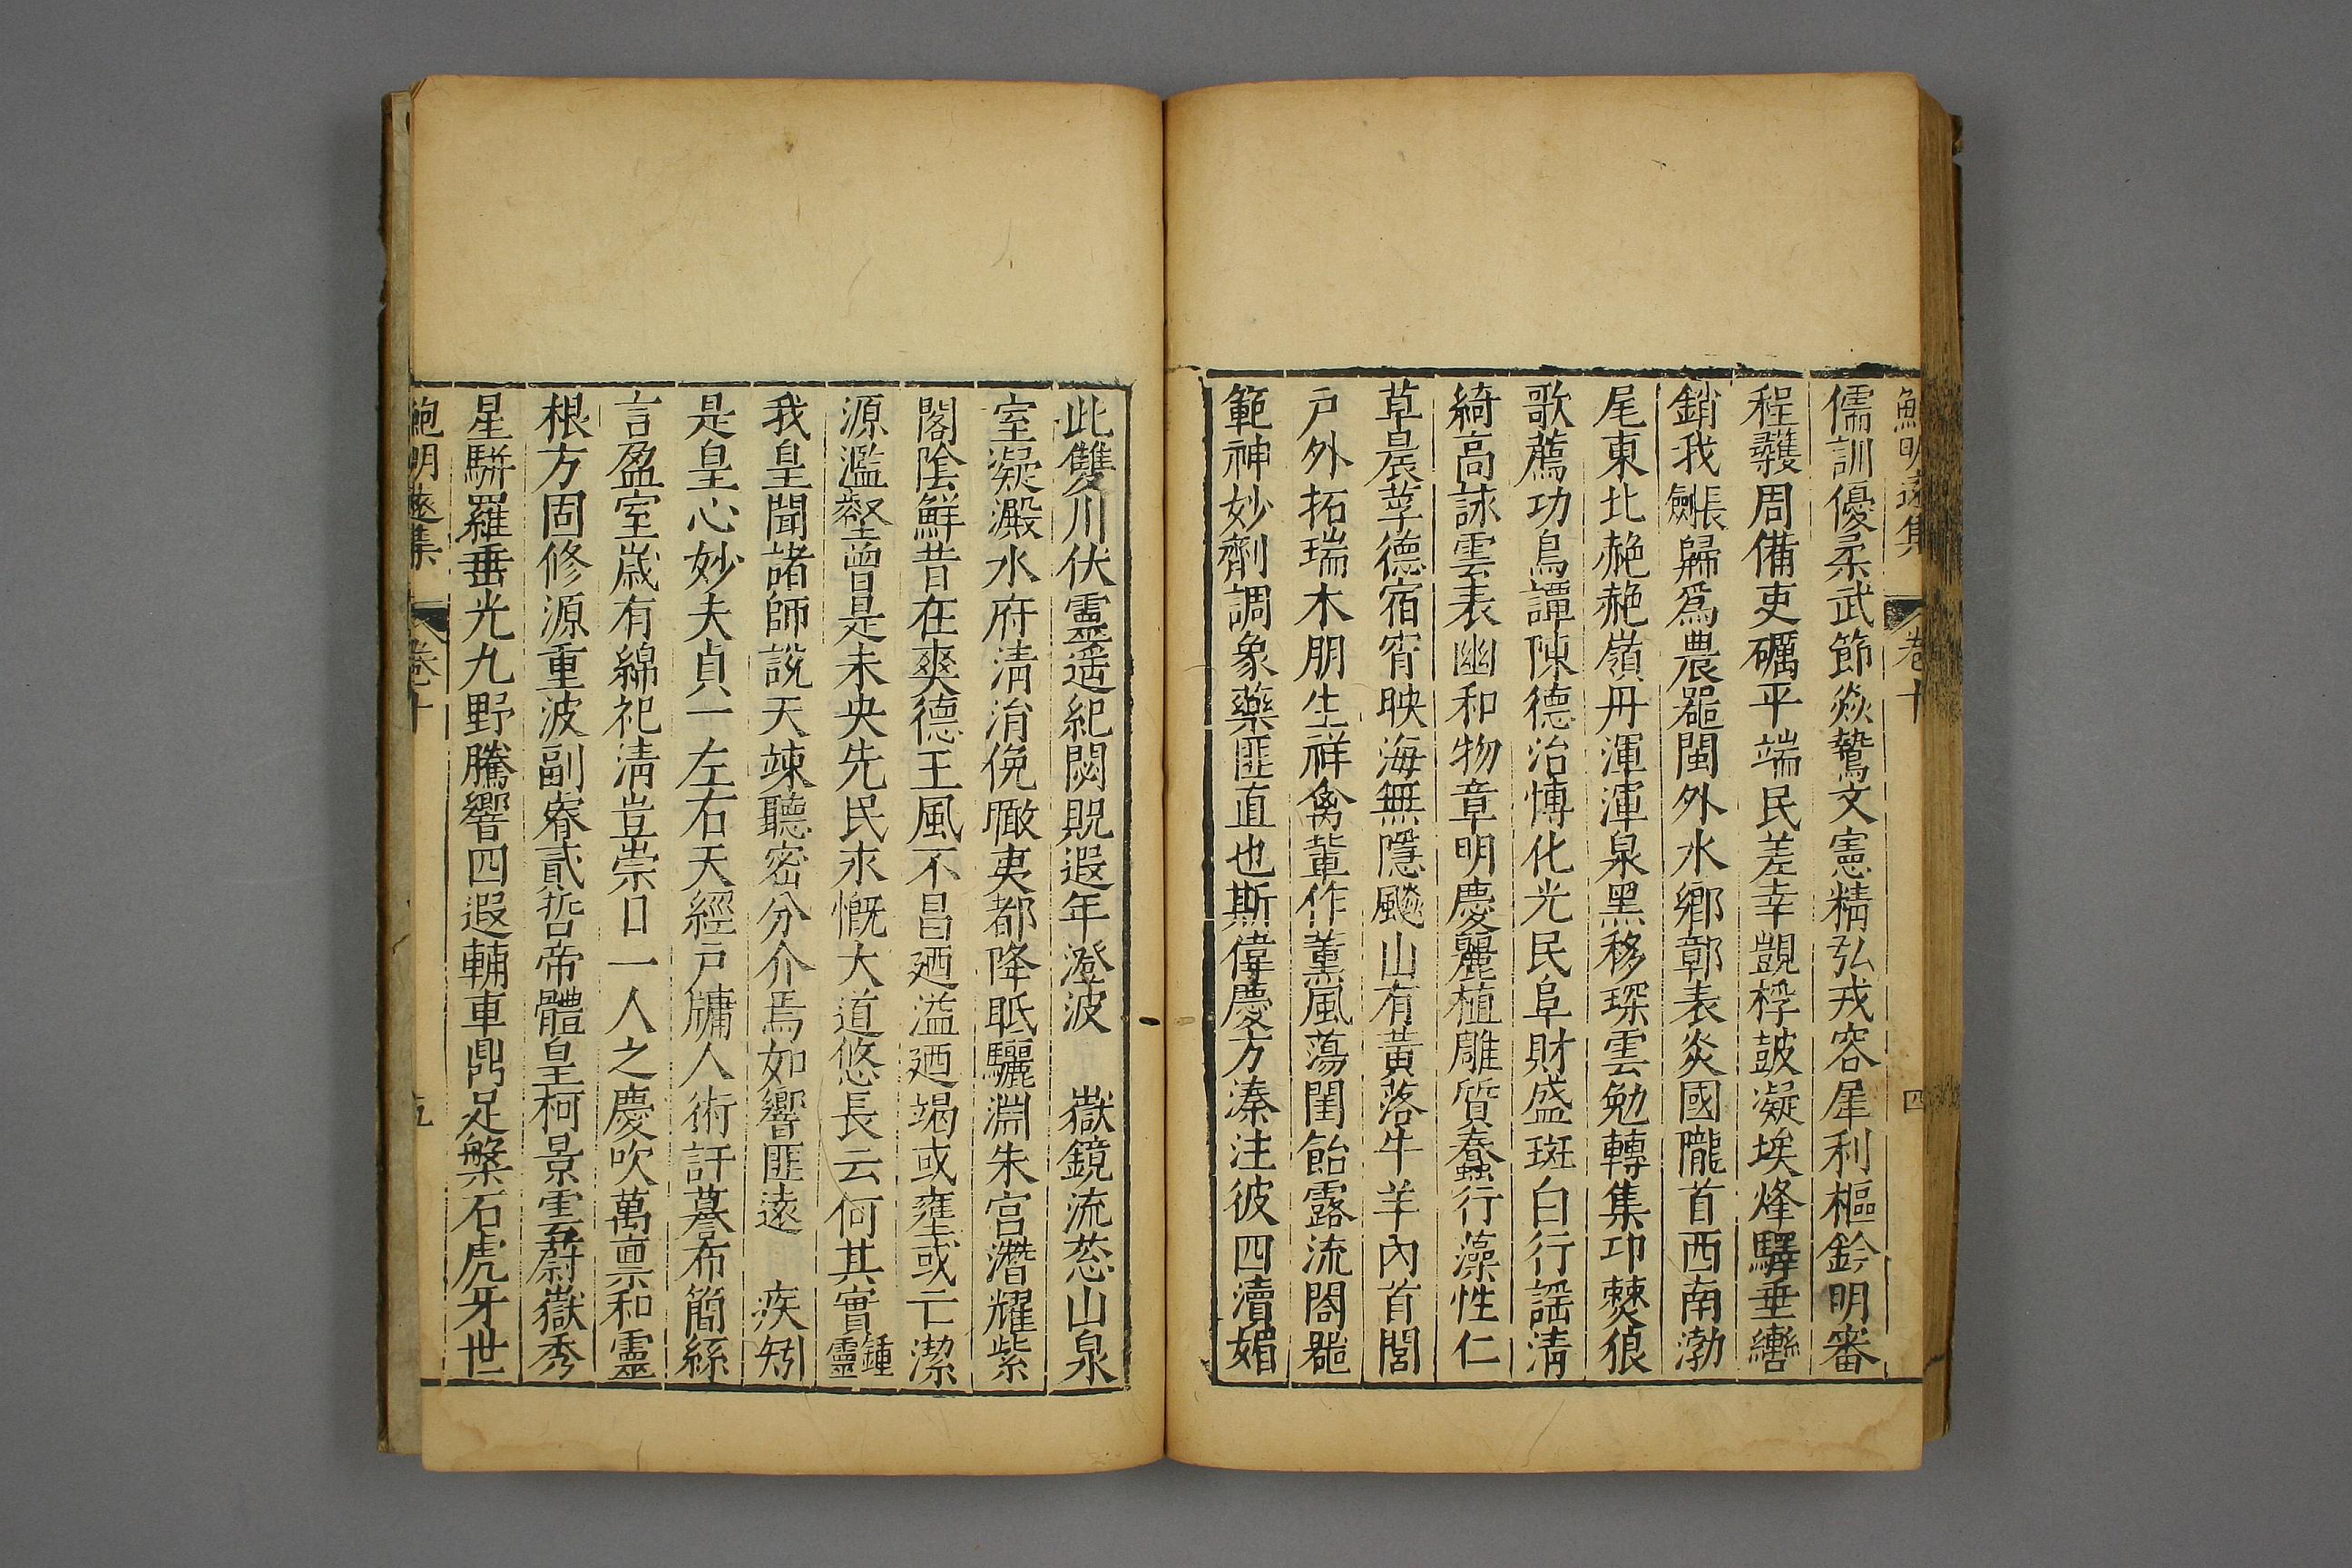 鮑明遠集
卷十
四
儒訓優柔武節焱鷙文憲精弘戎容犀利樞鈐明審
程䕶周備吏礪平端民差幸覬桴鼓凝埃烽驛垂轡
銷我長劒歸爲農器閩外水鄉鄣表炎國隴首西南渤
尾東北赩赩嶺丹渾渾泉黑移琛雲勉轉集邛僰狼
歌薦功鳥譚陳德治慱化光民阜財盛斑白行謡清
綺高詠雲表幽和物章明慶麗植雕質春蟲行藻性仁
草晨莩德宿宵映海無隱飈山有黃落牛羊內首閭
戶外拓瑞木朋生祥禽輩作薰風蕩閨飴露流閤器
範神妙劑調象藥匪直也斯偉慶方溱注彼四瀆媚
此雙川伏靈遥紀閟貺遐年澄波 嶽鏡流葱山泉
室凝澱水府清涓俛瞰夷都降眡驪淵朱宫潛耀紫
閣陰鮮昔在爽德王風不昌廼溢廼竭或壅或亡潔
源濫壑曾是未央先民永慨大道悠長云何其實鍾靈
我皇聞諸師說天竦聽密分介焉如響匪遠 疾矧
是皇心妙夫貞一左右天經戶牖人術訏謩布簡絲
言盈室歲有綿祀清豈崇日一人之慶吹萬禀和靈
根方固修源重波副睿貳哲帝體皇柯景雲蔚嶽秀
星駢羅垂光九野騰響四遐輔車鼎足槃石虎牙世
鮑明遠集
卷十
五